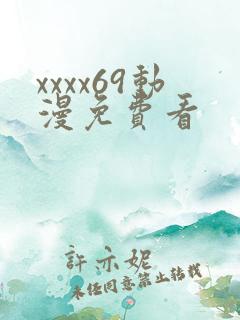 xxxx69動
漫免費看
許亦妮
未经同意禁止转载